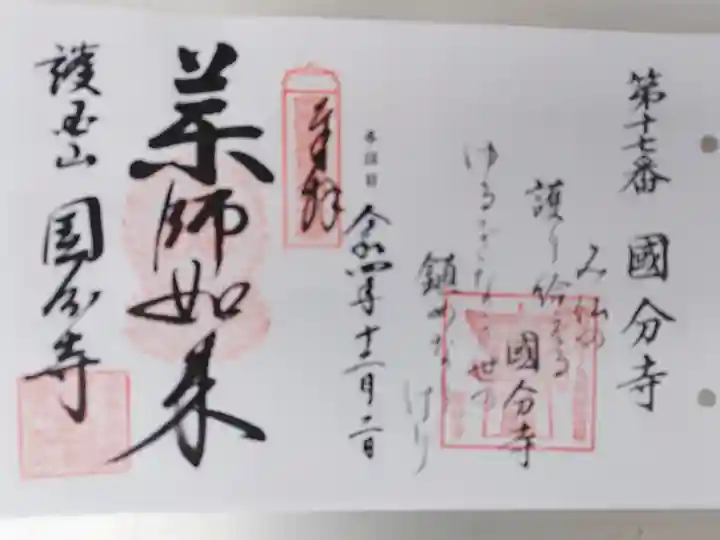 第十七番 國分寺
み仏の
護り給える
國分寺
ゆるぎない世の
鎮めなりけり
奉拝
令和四年十二月二日
薬師如来
護国山 国分寺